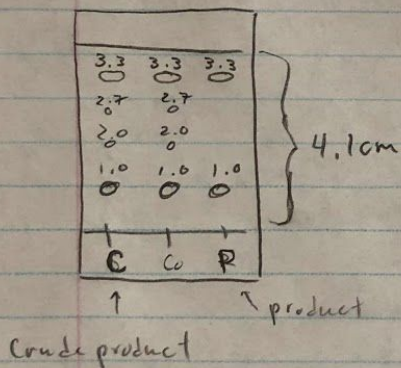 3.3 3.3 3.3
2.7 2.7
2.0 2.0
1.0 1.0 1.0
4.1cm
C Co R
product
Crude product